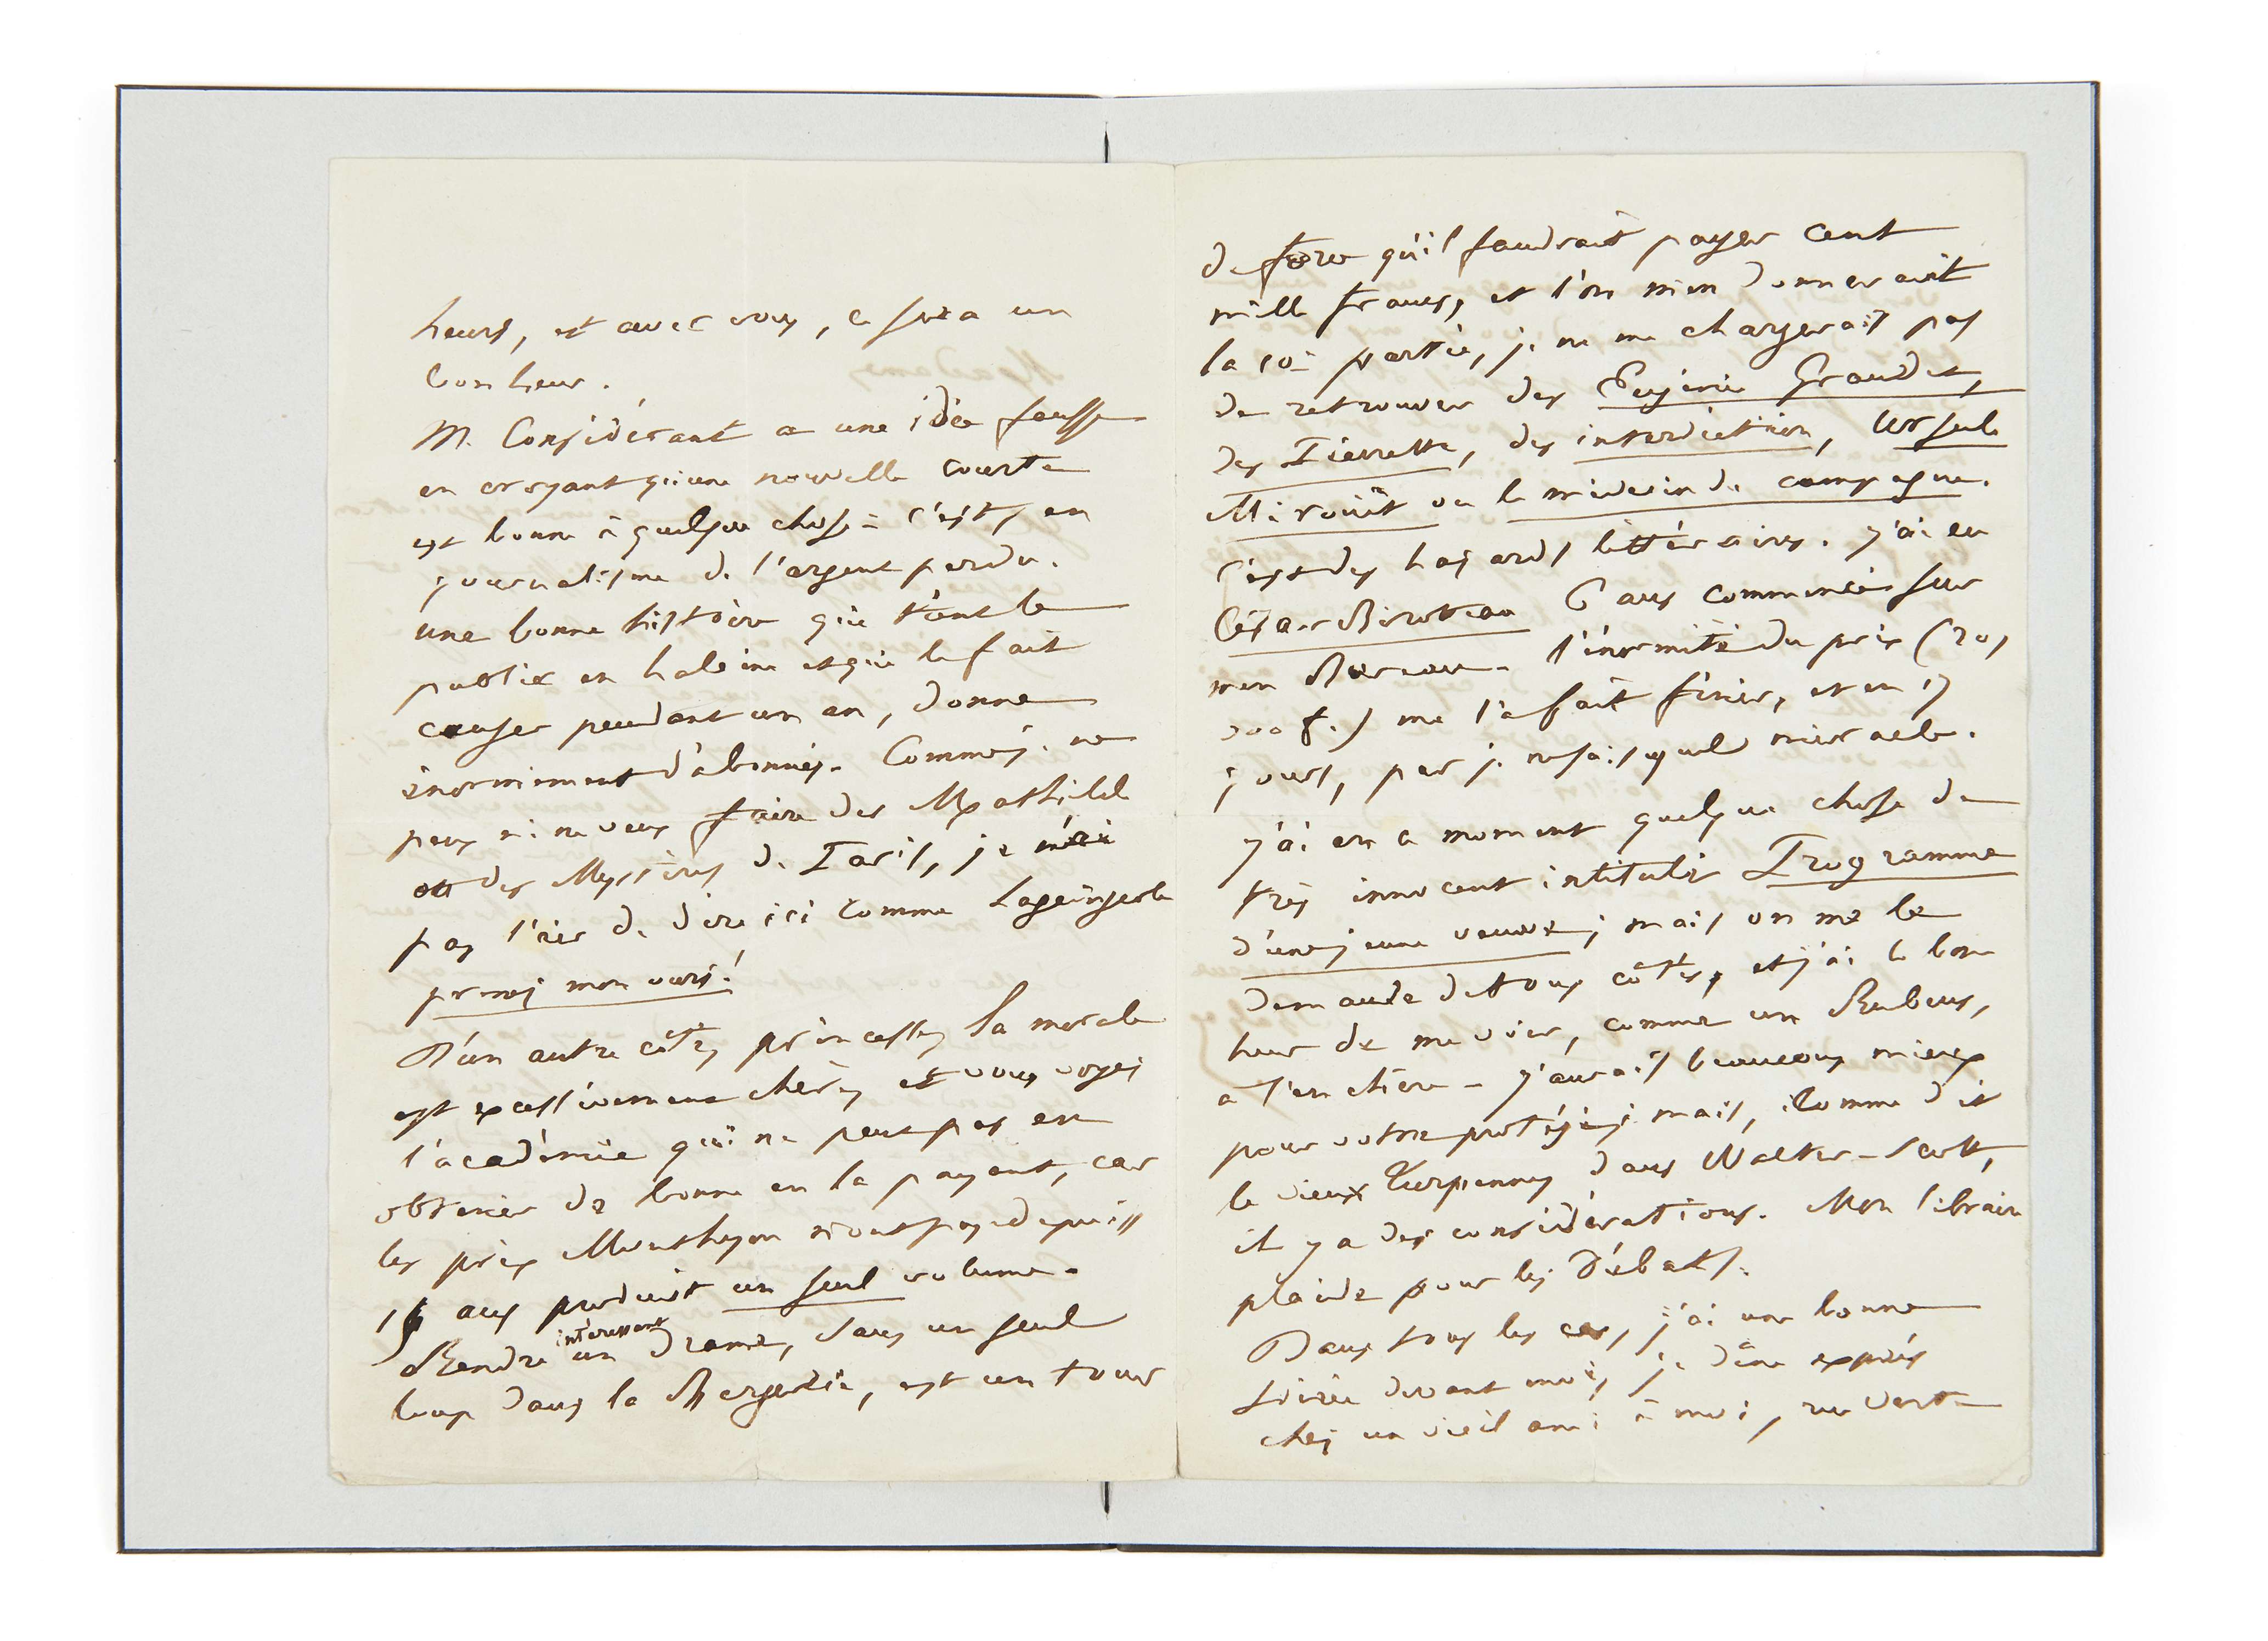 heures, et avec vous, ce sera un
bonheur.
M. Considérant a une idée fausse
en croyant qu'une nouvelle courte
est bonne à quelque chose - c'est, en
journalisme de l'argent perdu.
une bonne histoire qui tient le
public en haleine et qui le fait
causer pendant un an, donne
énormément d'abonnés. Comme je ne
peux ni ne veux faire des Mathilde
ou des Mystères de Paris, je n'ai
pas l'air de dire ici comme Lagingeole
prenez mon ours!
D'un autre côté, princesse, la morale
est excessivement chère, et vous voyez
l'académie qui ne peut pas en
obtenir de bonne en la payant, car
les prix Monthyon n'ont pas depuis
15 ans produit un seul volume.
Rendre intéressant un drame, sans un seul
loup dans la Bergerie, est un tour
de force qu'il faudrait payer cent
mille francs, et l'on m'en donnerait
la 10e partie, je ne me chargerais pas
de retrouver des Eugénie Grandet,
des Pierrette, des interdiction, Ursule
Mirouët ou le médecin de campagne.
C'est des hasards littéraires. J'ai eu
César Birotteau 6 ans commencé sur
mon Bureau. l'énormité du prix (20,
000 f.) me l'a fait finir, et en 17
jours, par je ne sais quel miracle.
J'ai en ce moment quelque chose de
très innocent intitulé Programme
d'une jeune veuve; mais on me le
demande de tous côtés, et j'ai le bon
heur de me voir, comme un Rubens,
à l'enchère - J'aurais beaucoup mieux
pour votre protégé; mais, comme dit
le vieux Turpenny dans Walter-Scott,
il y a des considérations. Mon libraire
plaide pour les Débats.
Dans tous les cas, j'ai une bonne
soirée devant moi, je dîne exprès
chez un vieil ami à moi, rue verte